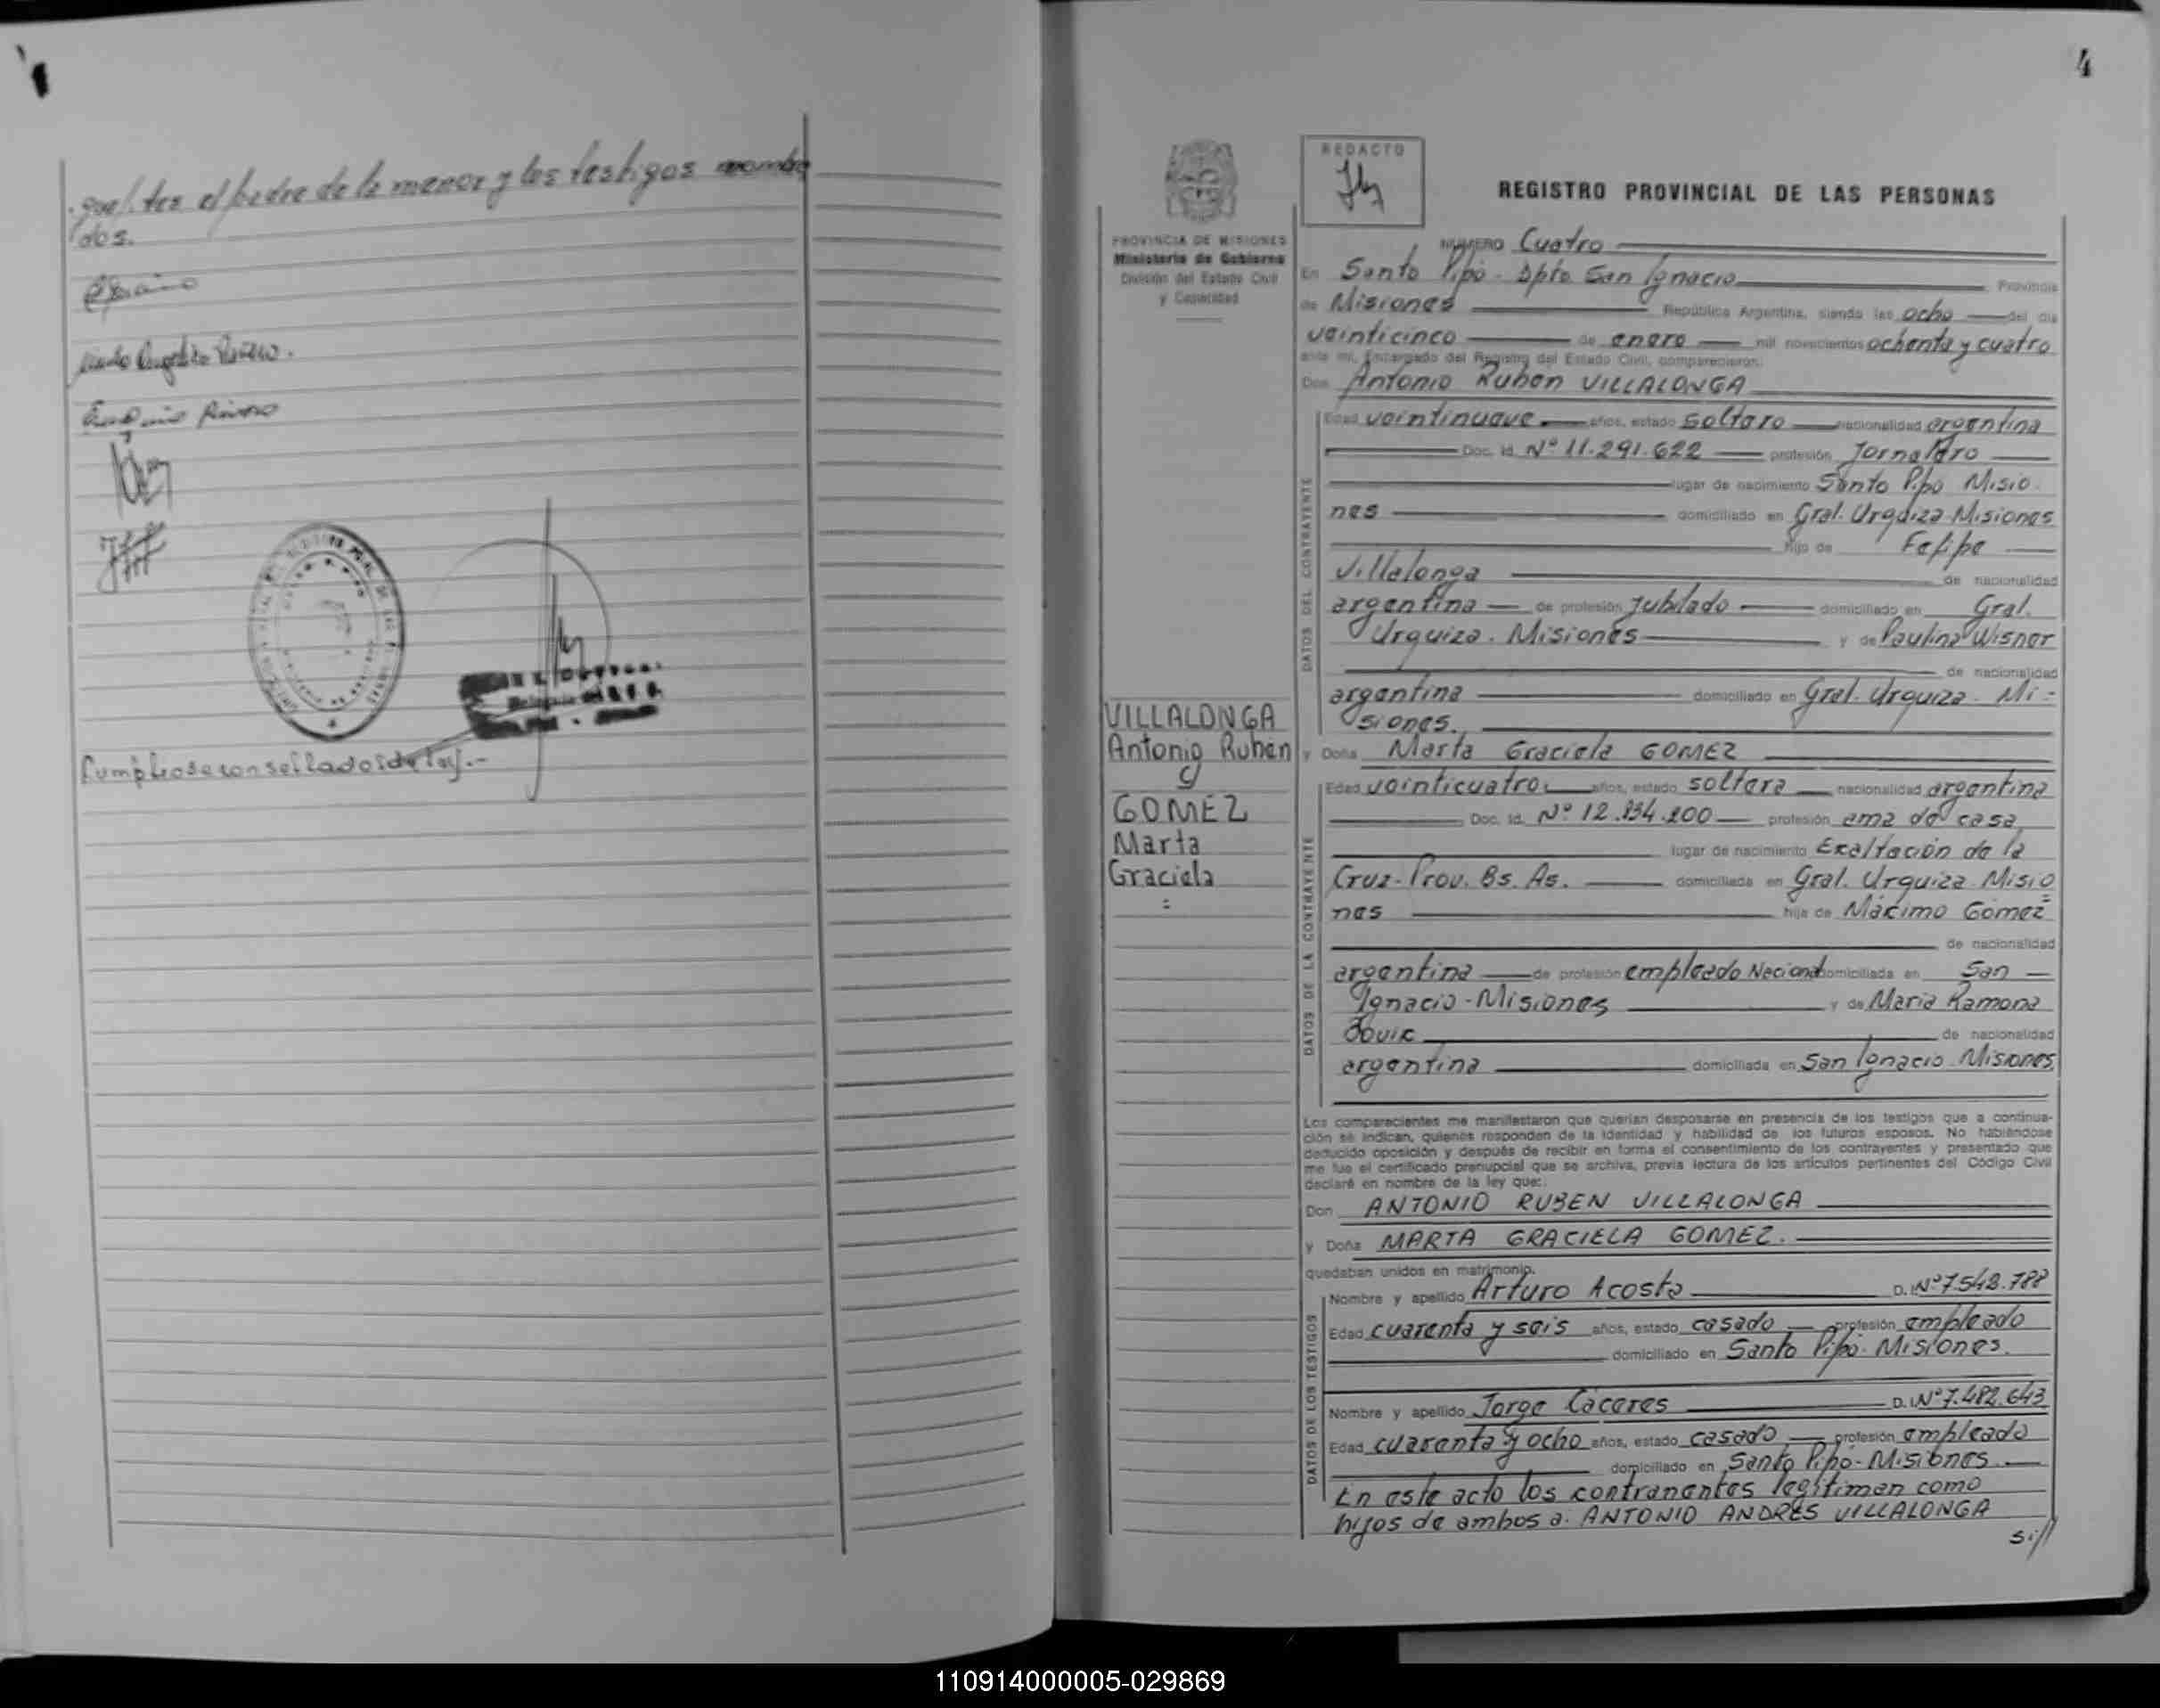 gual. tes el padre de la menor y los testigos nombra
dos.
Cumpliose con sellado de ley.-
4
REDACTO
REGISTRO PROVINCIAL DE LAS PERSONAS
PROVINCIA DE MISIONES
Ministerio de Gobierno
División del Estado Civil
y Capacidad
NUMERO Cuatro
En Santo Pipó - Dpto San Ignacio Provincia
de Misiones República Argentina, siendo las ocho del día
veinticinco de enero mil novecientos ochenta y cuatro
ante mí, Encargado del Registro del Estado Civil, comparecieron:
Don Antonio Ruben VILLALONGA
DATOS DEL CONTRAYENTE
Edad veintinueve años, estado soltero nacionalidad argentina
Doc. Id. Nº 11.291.622 profesión Jornalero
lugar de nacimiento Santo Pipó Misio
nes domiciliado en Gral. Urquiza-Misiones
hijo de Felipe
Villalonga de nacionalidad
argentina de profesión Jubilado domiciliado en Gral.
Urquiza. Misiones y de Paulina Wisner
de nacionalidad
argentina domiciliado en Gral. Urquiza. Mi-
siones.
VILLALONGA
Antonio Ruben
y
GOMEZ
Marta
Graciela
y Doña Marta Graciela GOMEZ
DATOS DE LA CONTRAYENTE
Edad veinticuatro años, estado soltera nacionalidad argentina
Doc. Id. Nº 12.834.200 profesión ama de casa
lugar de nacimiento Exaltación de la
Cruz-Prov. Bs. As. domiciliada en Gral. Urquiza-Misio
nes hija de Máximo Gómez
de nacionalidad
argentina de profesión empleado Nacional domiciliado en San
Ignacio-Misiones y de María Ramona
de nacionalidad
argentina domiciliada en San Ignacio-Misiones.
Los comparecientes me manifestaron que querían desposarse en presencia de los testigos que a continua-
ción se indican, quienes responden de la identidad y habilidad de los futuros esposos. No habiéndose
deducido oposición y después de recibir en forma el consentimiento de los contrayentes y presentado que
me fue el certificado prenupcial que se archiva, previa lectura de los artículos pertinentes del Código Civil
declaré en nombre de la ley que:
Don ANTONIO RUBEN VILLALONGA
y Doña MARTA GRACIELA GOMEZ.
quedaban unidos en matrimonio.
DATOS DE LOS TESTIGOS
Nombre y apellido Arturo Acosta D.I.Nº7.542.788
Edad cuarenta y seis años, estado casado profesión empleado
domiciliado en Santo Pipó-Misiones.
Nombre y apellido Jorge Cáceres D.I.Nº7.482.643
Edad cuarenta y ocho años, estado casado profesión empleado
domiciliado en Santo Pipó-Misiones.
En este acto los contranentes legitiman como
hijos de ambos a: ANTONIO ANDRÉS VILLALONGA
110914000005-029869